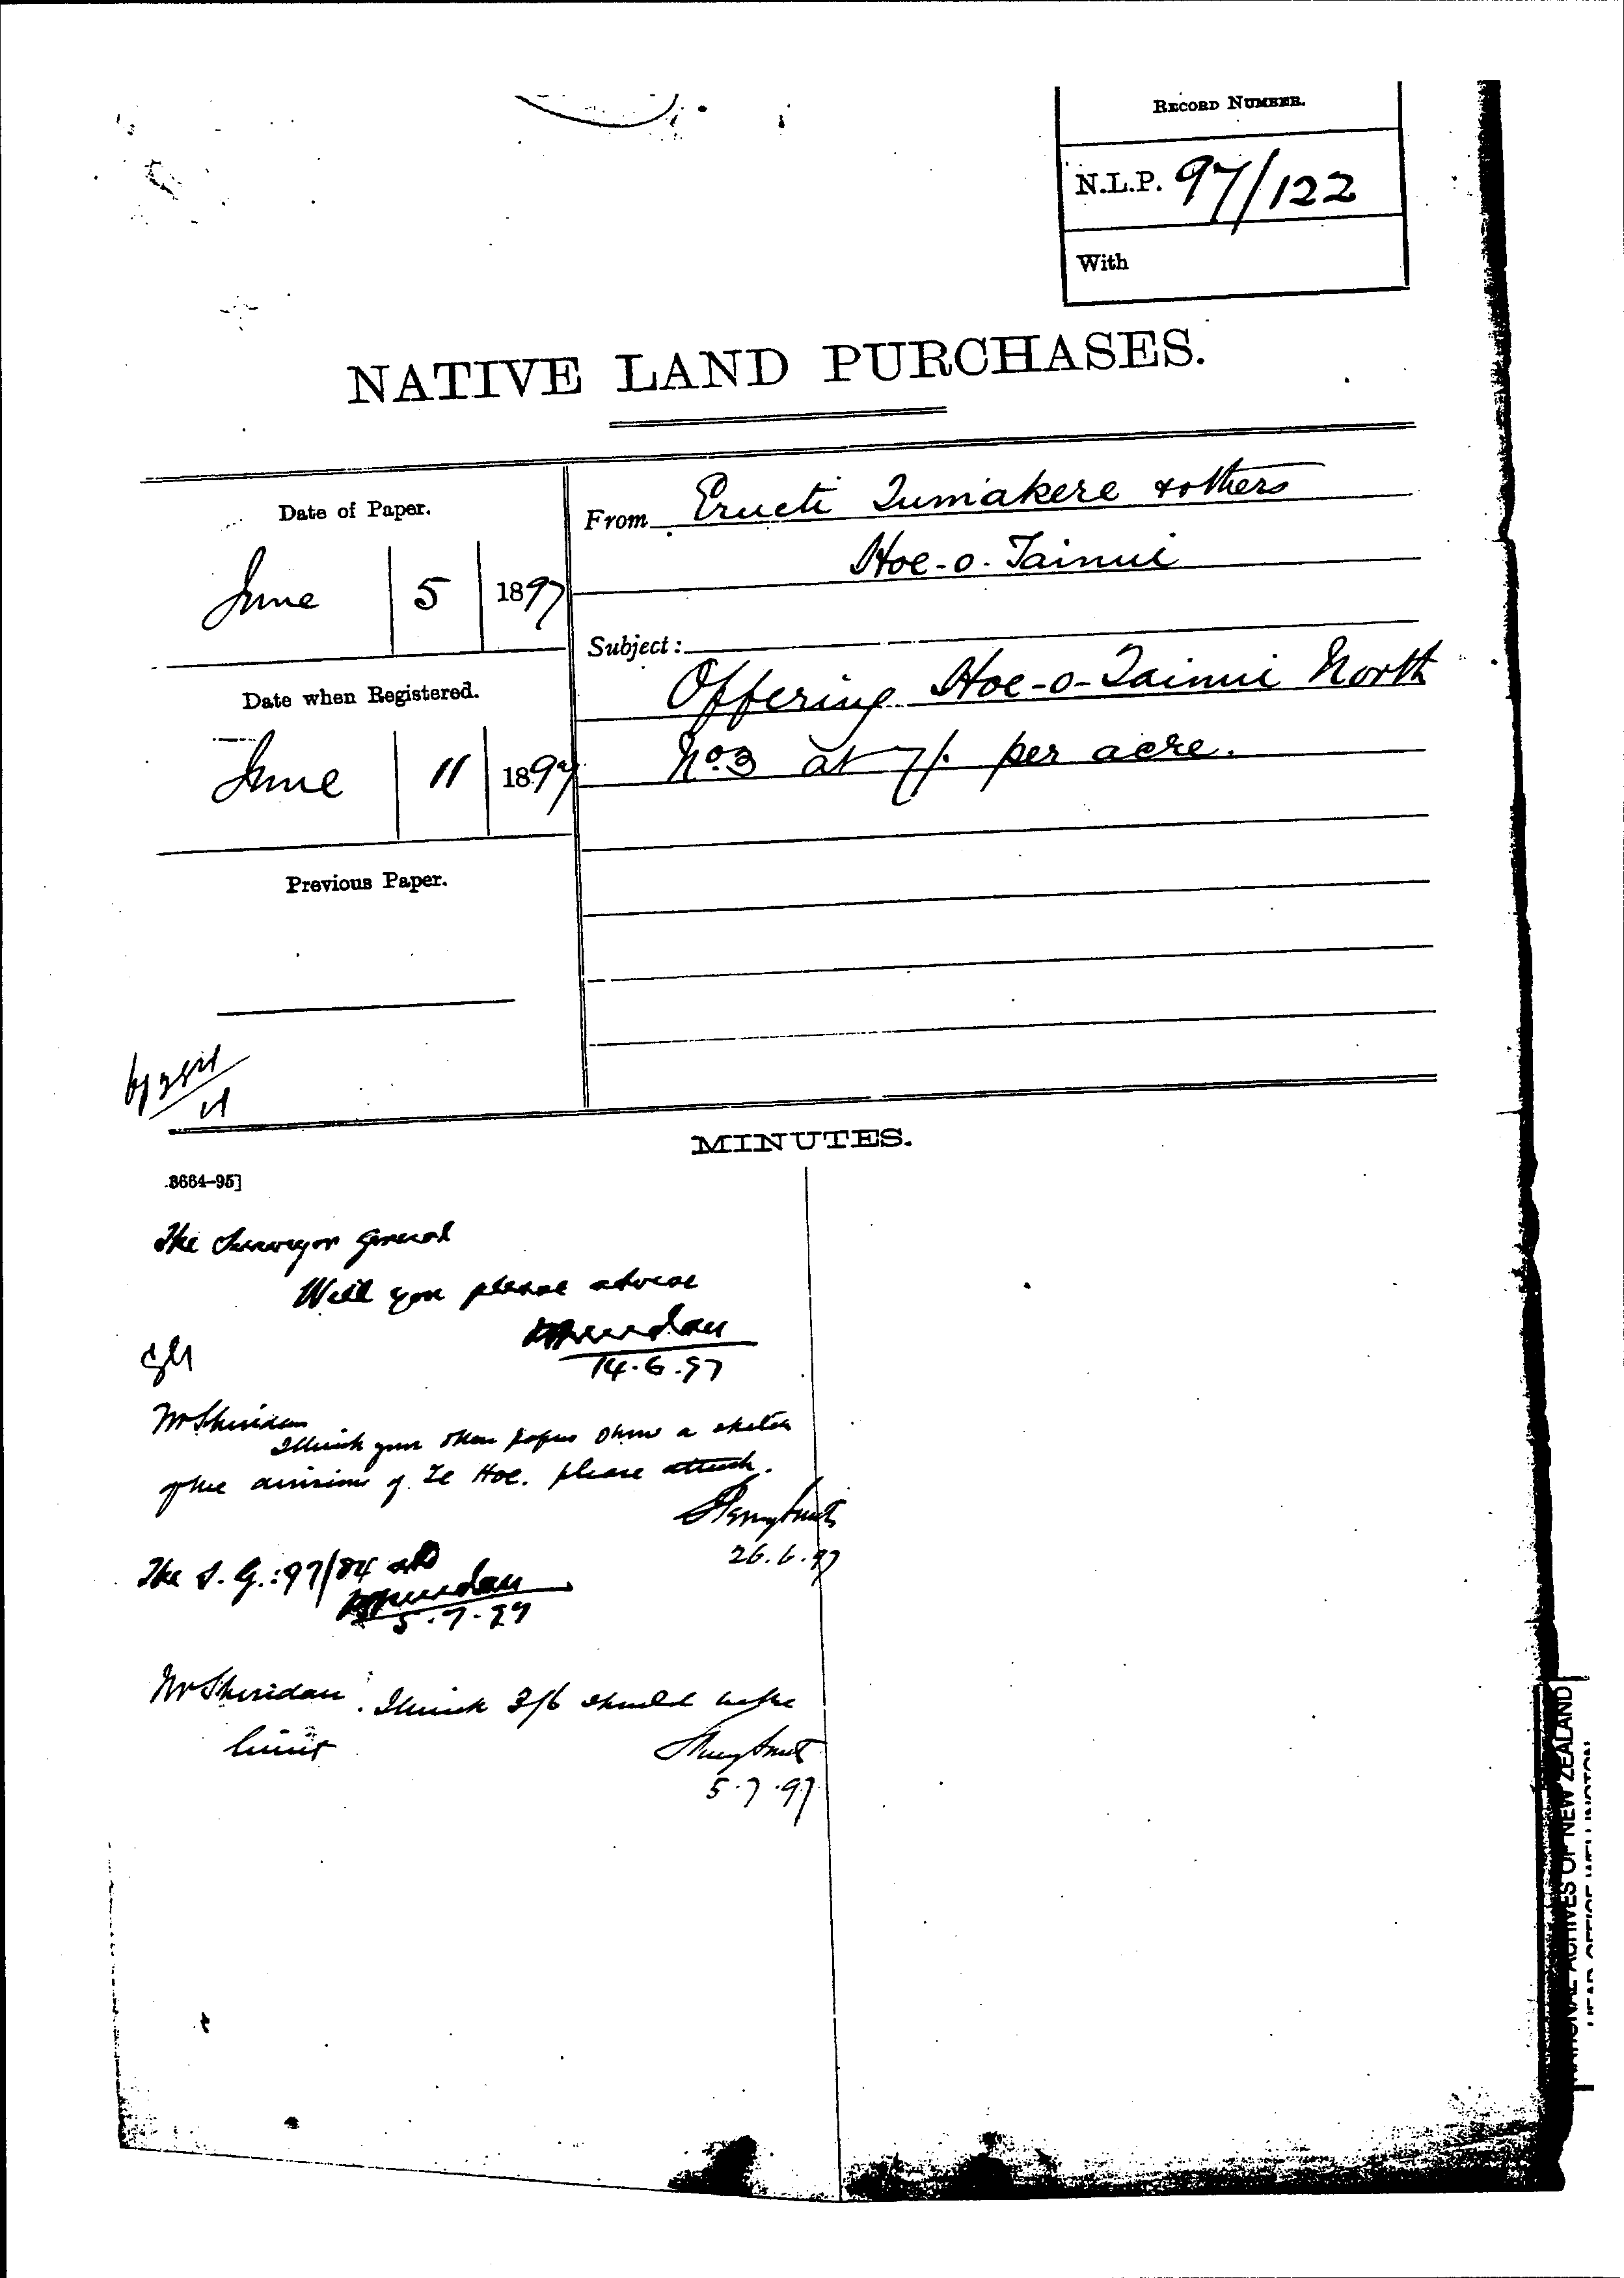 RECORD NUMBER.
N.L.P. 97/122
With
NATIVE LAND PURCHASES.
Date of Paper.
June 5 1897
Date when Registered.
June 11 1897
Previous Paper.
From Erueti Tumakere & others
Hoe-o-Tainui
Subject:
Offering Hoe-o-Tainui North
No. 3 at 7/. per acre.
MINUTES.
3664–95]
The Surveyor General
Will you please advise
PSheridan
14.6.97
Mr Sheridan
I think your other papers show a sketch
of the divisions of Te Hoe. please attach.
S Percy Smith
26.6.97
The S.G.: 97/84 att
PSheridan
5.7.97
Mr Sheridan: I think 3/6 should be the
limit
S Percy Smith
5.7.97
NATIONAL ARCHIVES OF NEW ZEALAND
HEAD OFFICE WELLINGTON